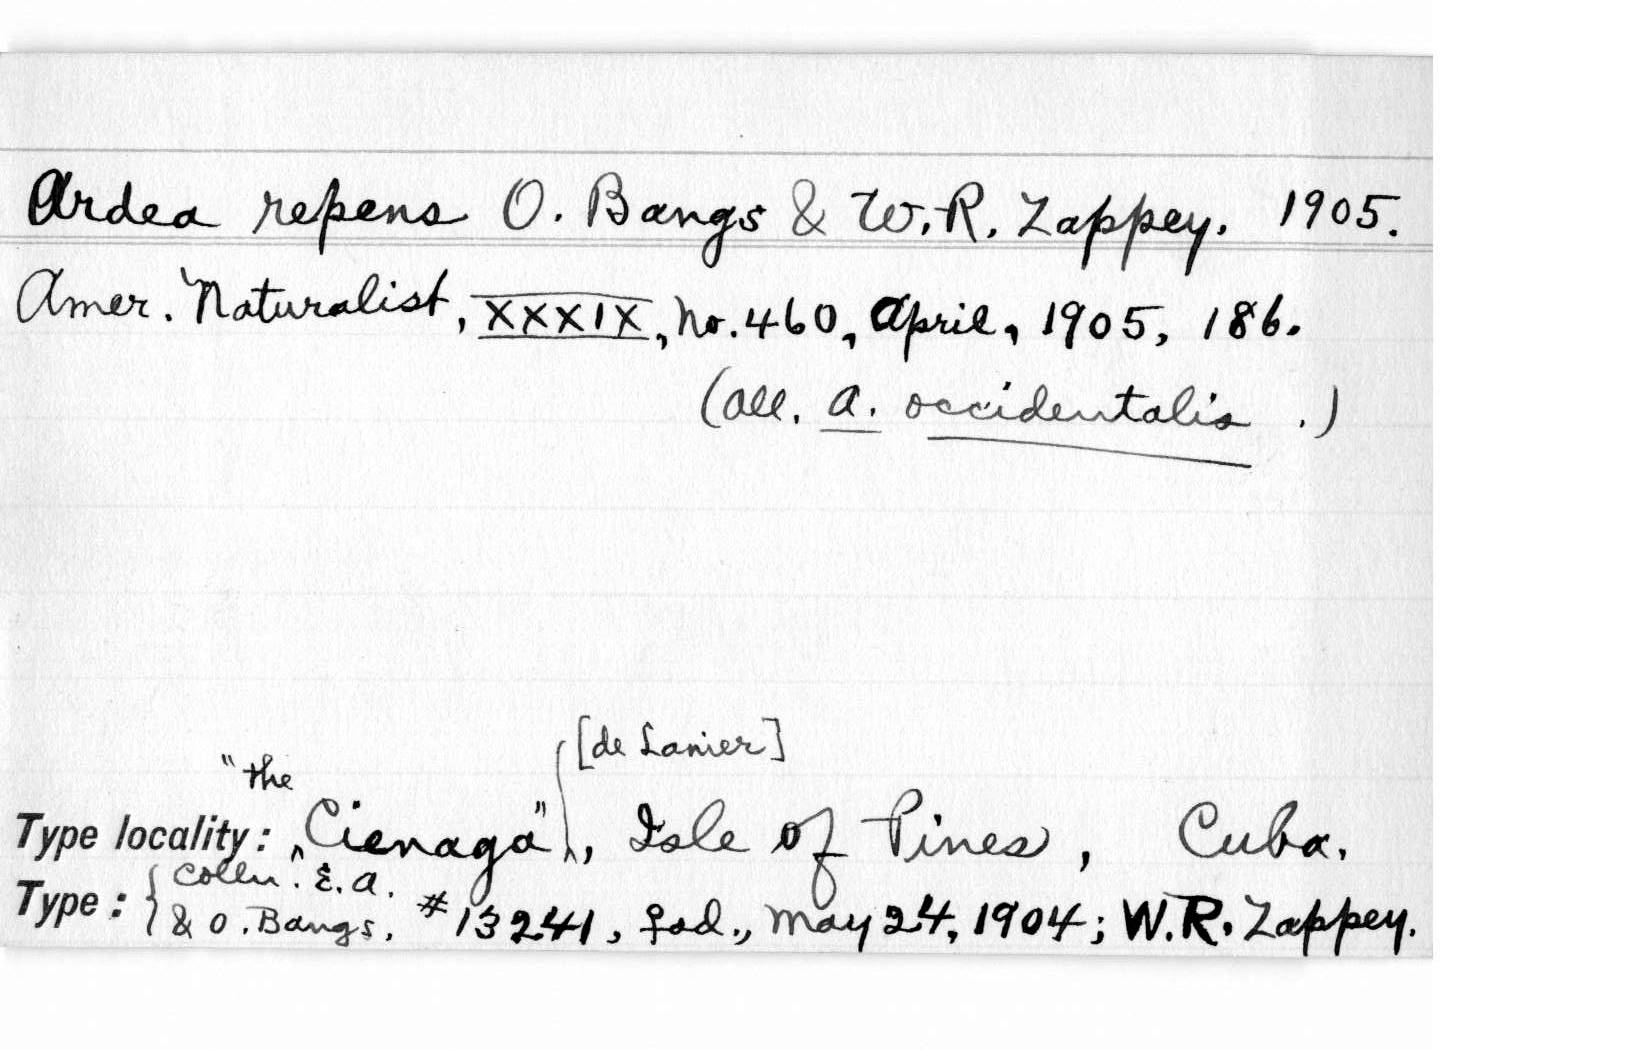 Ardea repens O. Bangs & W.R. Zappey. 1905.
Amer. Naturalist, XXXIX, No. 460, April, 1905, 186.
(all. A. occidentalis .)
[de Lanier]
"the
Type locality: "Cienaga", Isle of Pines, Cuba.
Type: { Colln. E.A. & O. Bangs. #13241, ♀ad., May 24, 1904; W.R. Zappey.